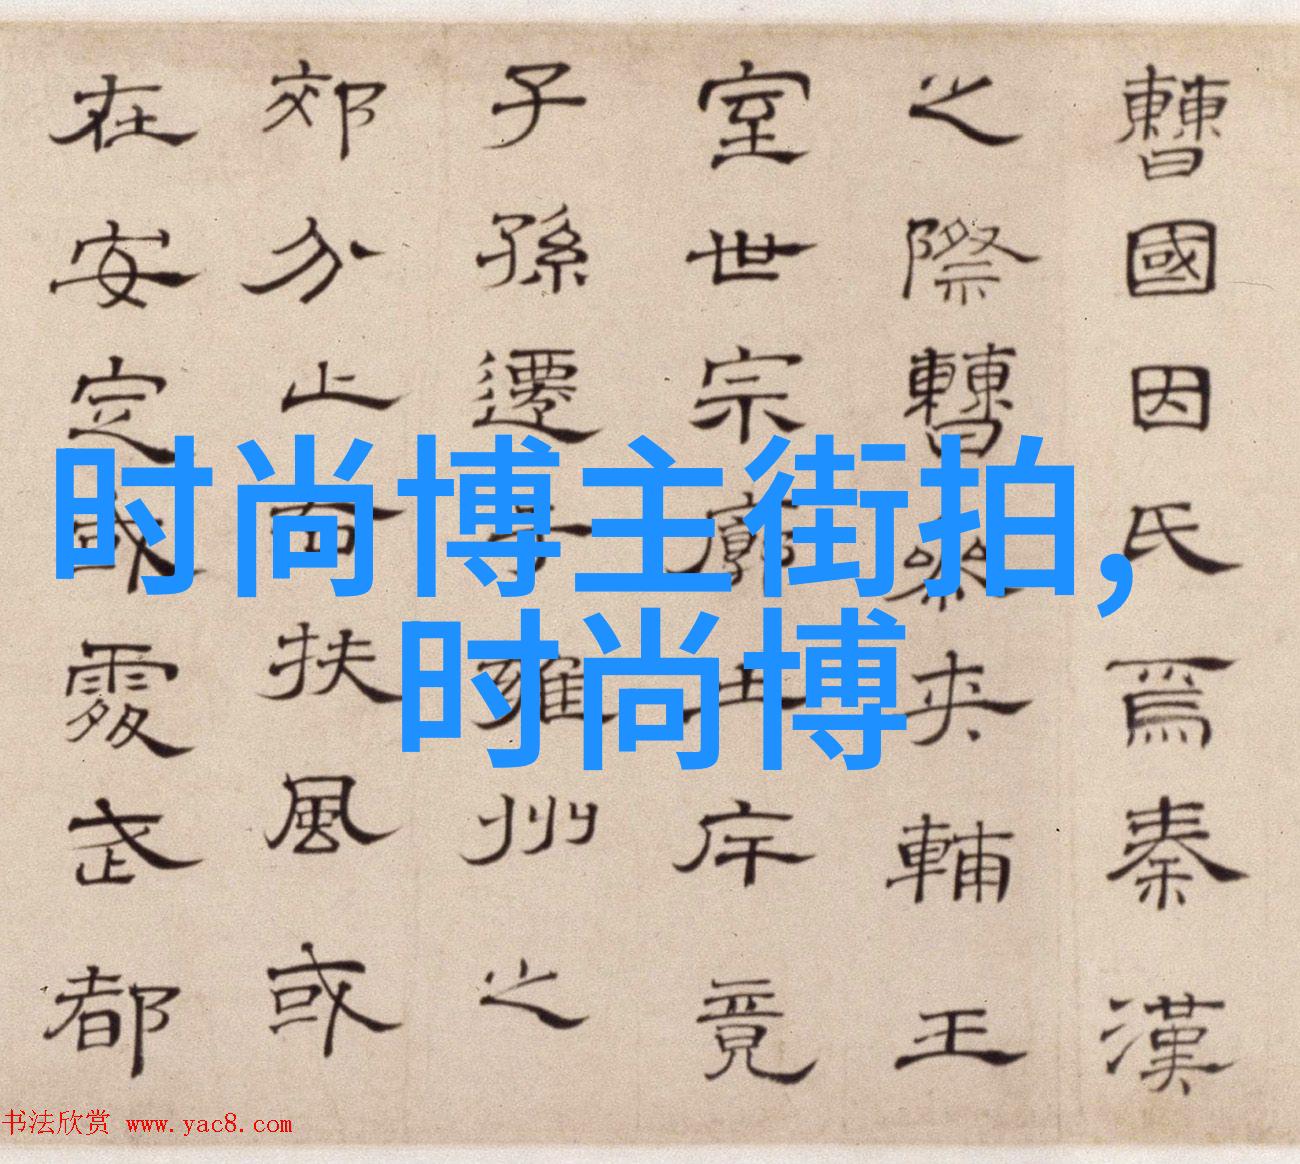 曹國因氏焉秦漢
之際曹參夾輔王
室世宗廓土斥竟
子孫遷于雍州之
郊分止右扶風或
在安定或處武都
时尚博主街拍,
时尚博
书法欣赏 www.yac8.com